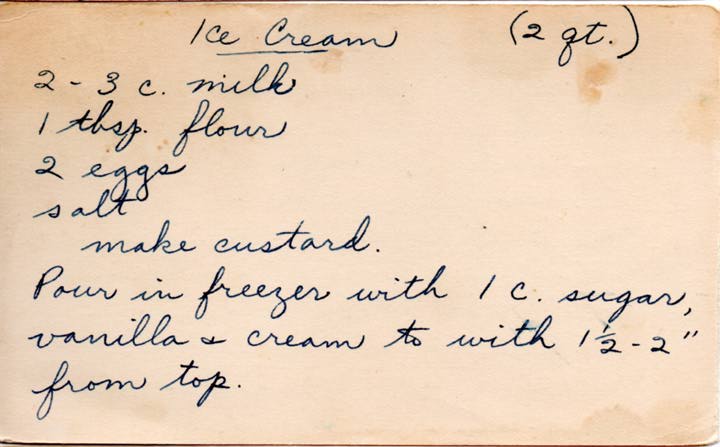 Ice Cream (2 qt.)
2 - 3 c. milk
1 tbsp. flour
2 eggs
salt
make custard.
Pour in freezer with 1 c. sugar,
vanilla & cream to with 1½ - 2"
from top.